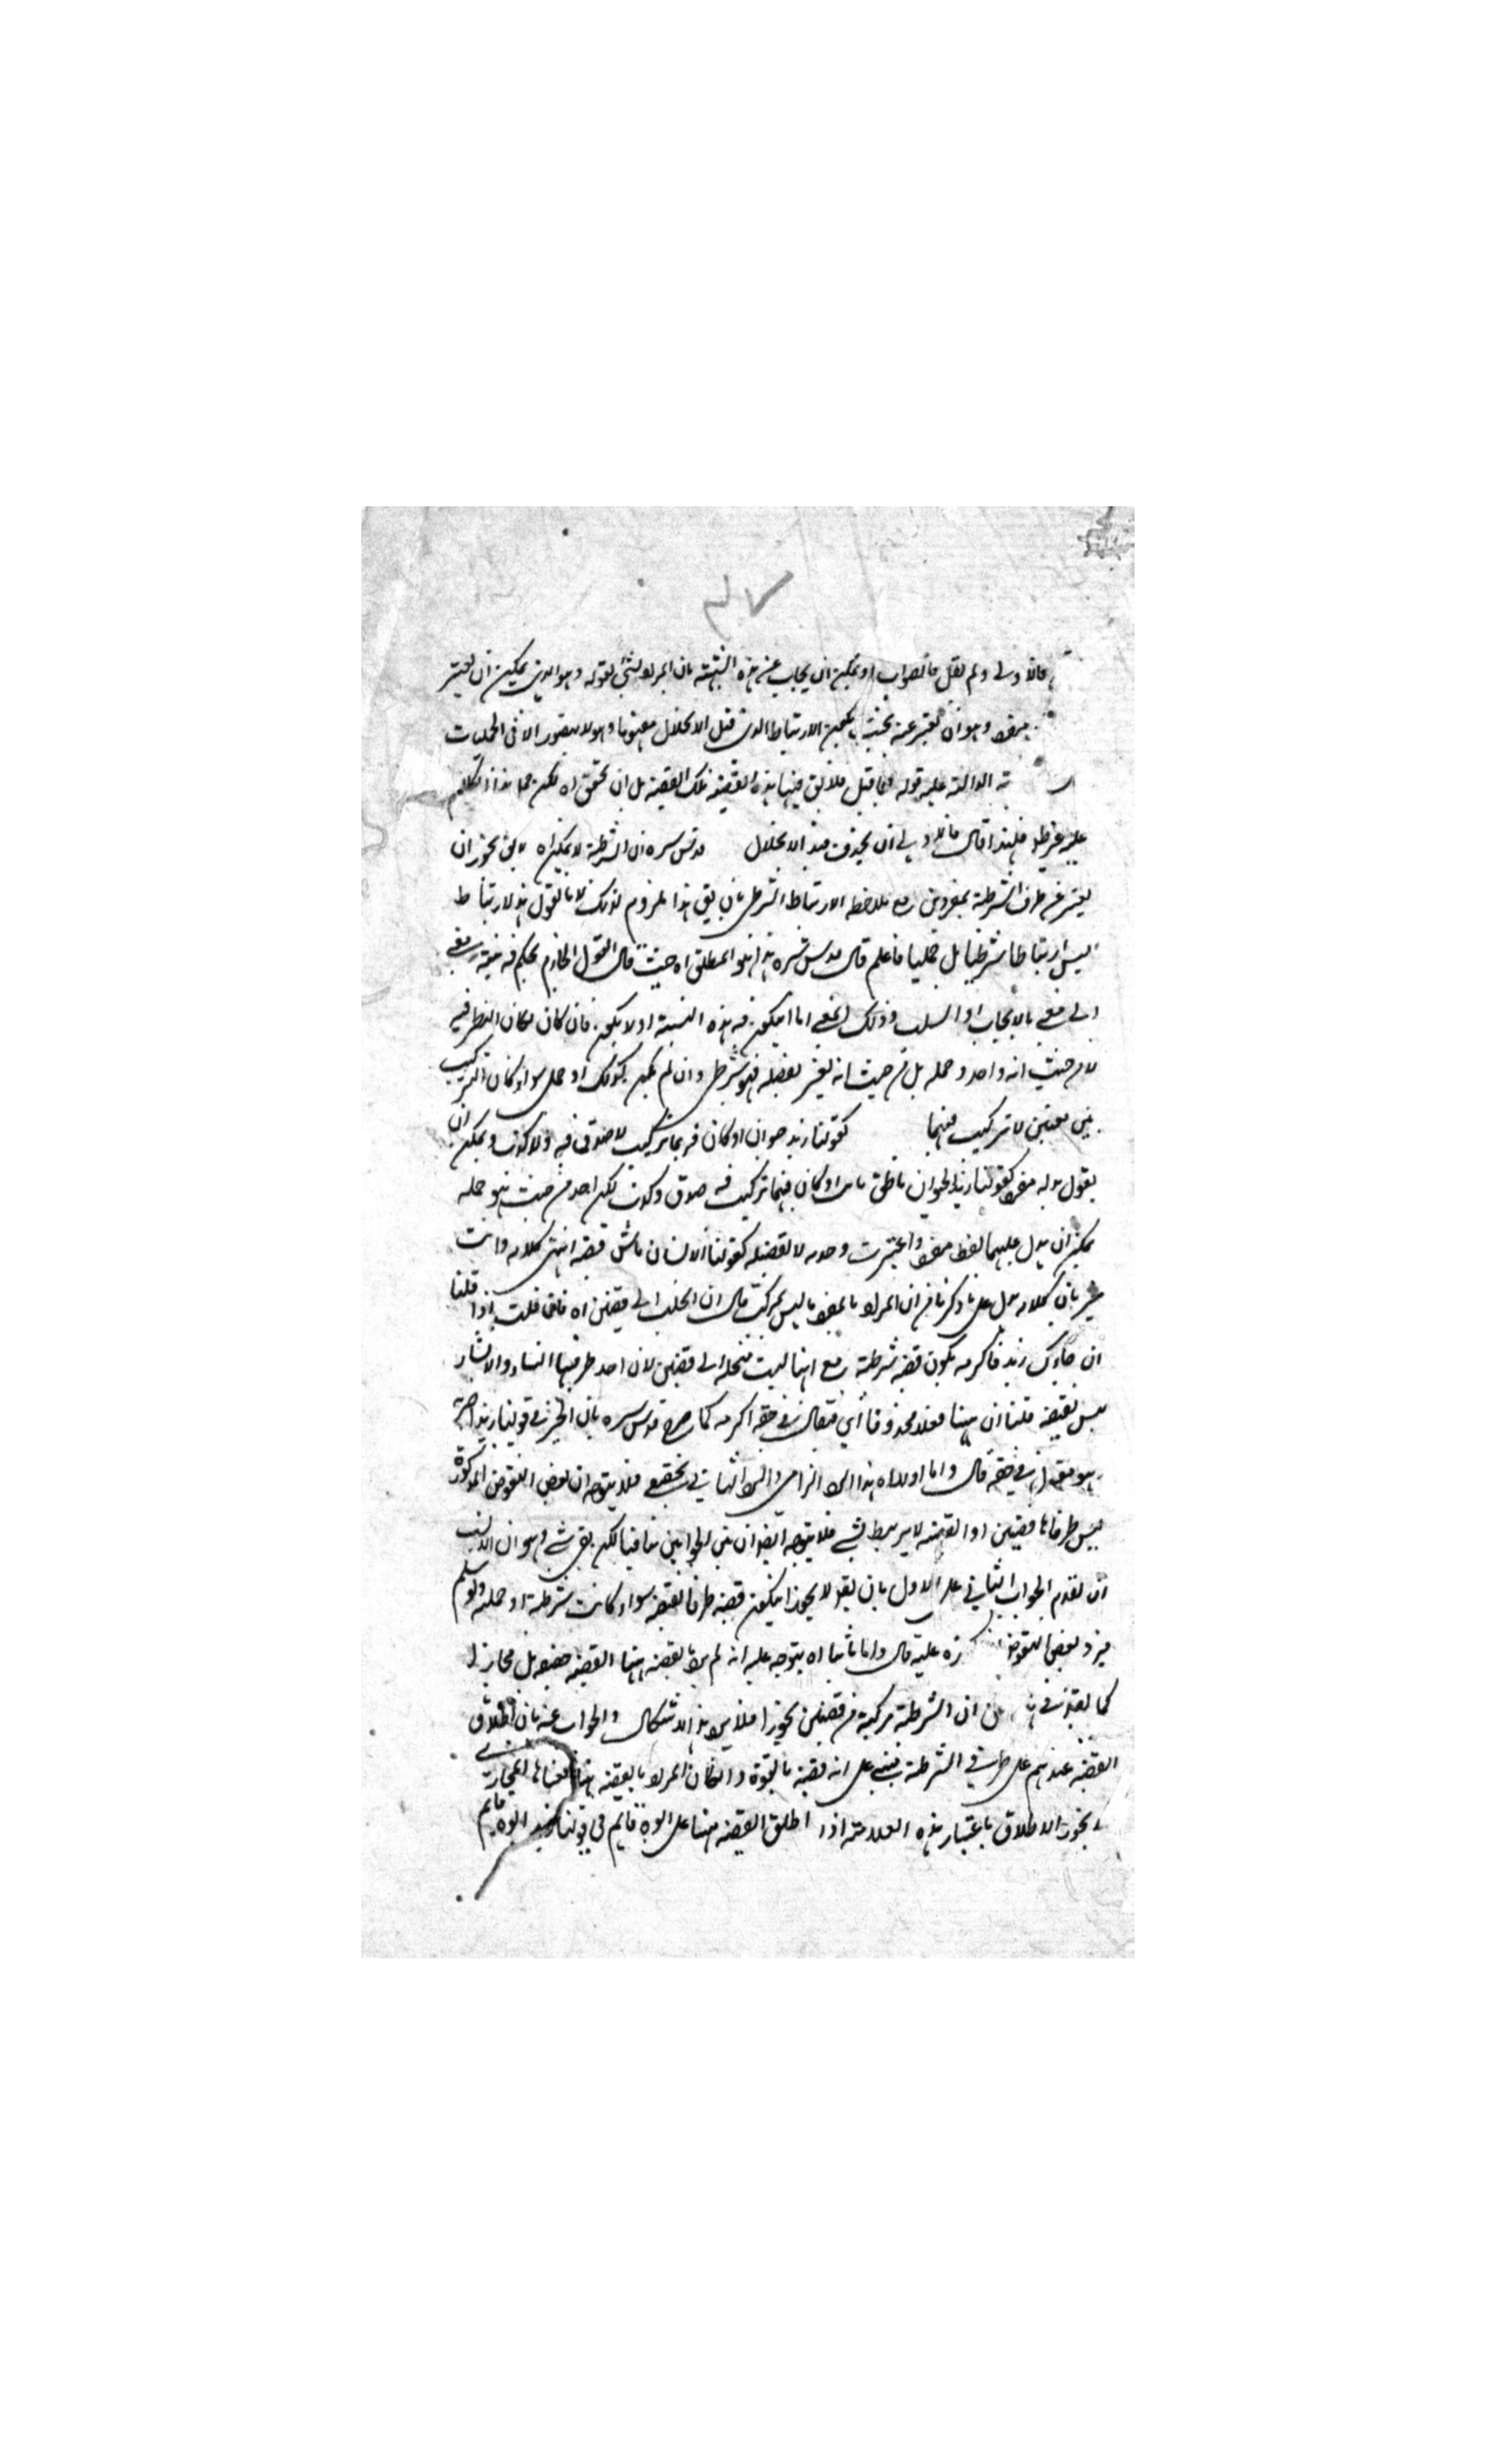 فالاولى ولم يقل فالصواب اذ يمكن ان يجاب عن هذه الشبهة بان المراد لشئ بقوله وهو الذي يمكن ان يعتبر
بمفرد وهو ان يعبر عنه بحيث يكون الارتباط الذي قبل الانحلال وهو لا يتصور الا في الحمليات
الدالة عليه قوله فيما قبل فلا يق فيها هذه القضية تلك القضية بل ان تحقق اه لكن حمل هذا الكلام
عليه غير ظ فلهذا قال فالاولى ان يحذف قيد الانحلال قدس سره ان الشرطية لا يمكن اه لا يق يجوز ان
يعبر عن طرفى الشرطية بمفردين مع ملاحظة الارتباط الشرطى بان يق هذا ملزوم لذلك لانا نقول هذا الارتباط
ليس ارتباطا شرطيا بل حمليا فاعلم قال قدس سره هذا هو المطلق اه حيث قال القول الجازم يحكم فيه بنسبة معنى
الى معنى بالايجاب او السلب وذلك المعنى اما ان يكون فيه هذه النسبة او لا يكون فان كان وكان النظر فيه
لا من حيث انه واحد وجملة بل من حيث انه يعتبر تفصيله فهو شرطى وان لم يكن كذلك فحملى سواء كان التركيب
بين معنيين لا تركيب فيهما كقولنا زيد حيوان او كان فيهما تركيب لا صدق فيه ولا كذب ويمكن ان
يقول بدله مفرد كقولنا زيد الحيوان ناطق مائت او كان فيهما تركيب فيه صدق وكذب لكن اخذ من حيث هو جملة
يمكن ان يدل عليها لفظ مفرد واعتبرت وحدته لا تفصيله كقولنا الانسان ماش قضية انتهى كلامه وانت
خبير بان كلامه يدل على ما ذكرنا من ان المراد بالمفرد ما ليس بمركب قال ان انحلت الى قضيتين اه فان قلت اذا قلنا
ان جاءك زيد فاكرمه يكون قضية شرطية مع انها ليست منحلة الى قضيتين لان احد طرفيها انشاء والانشاء
ليس بقضية قلنا ان هنا فعلا محذوفا اي فيقال في حقه اكرمه كما صرح قدس سره بان الخبر في قولنا زيد اضربه
هو مقول في حقه قال واما اولا اه هذا الجواب الزامى والجواب الثاني تحقيقى فلا يتوجه ان بعض النقوض المذكورة
ليس طرفاها قضيتين اذ القضية لا يرتبط بشئ فلا يتوجه ايضا ان بين الجوابين تنافيا لكن بقى شئ وهو ان الانسب
ان يقدم الجواب الثاني على الاول بان يقول لا يجوز ان يكون قضية طرفا لقضية سواء كانت شرطية او حملية ولو سلم
فيرد بعض النقوض عليه قال واما ثانيا اه يتوجه عليه انه لم يرد بالقضية هنا القضية حقيقة بل مجازا
كما يقولون ان الشرطية مركبة من قضيتين تجوزا فلا يرد هذا الاشكال والجواب عنه بان اطلاق
القضية عندهم على طرفي الشرطية مبنى على انه قضية بالقوة وان كان المراد بالقضية هنا معناها المجازى
يجوز الاطلاق باعتبار هذه العلاقة اذا اطلق القضية هنا على ابوه قايم في قولنا زيد ابوه قايم